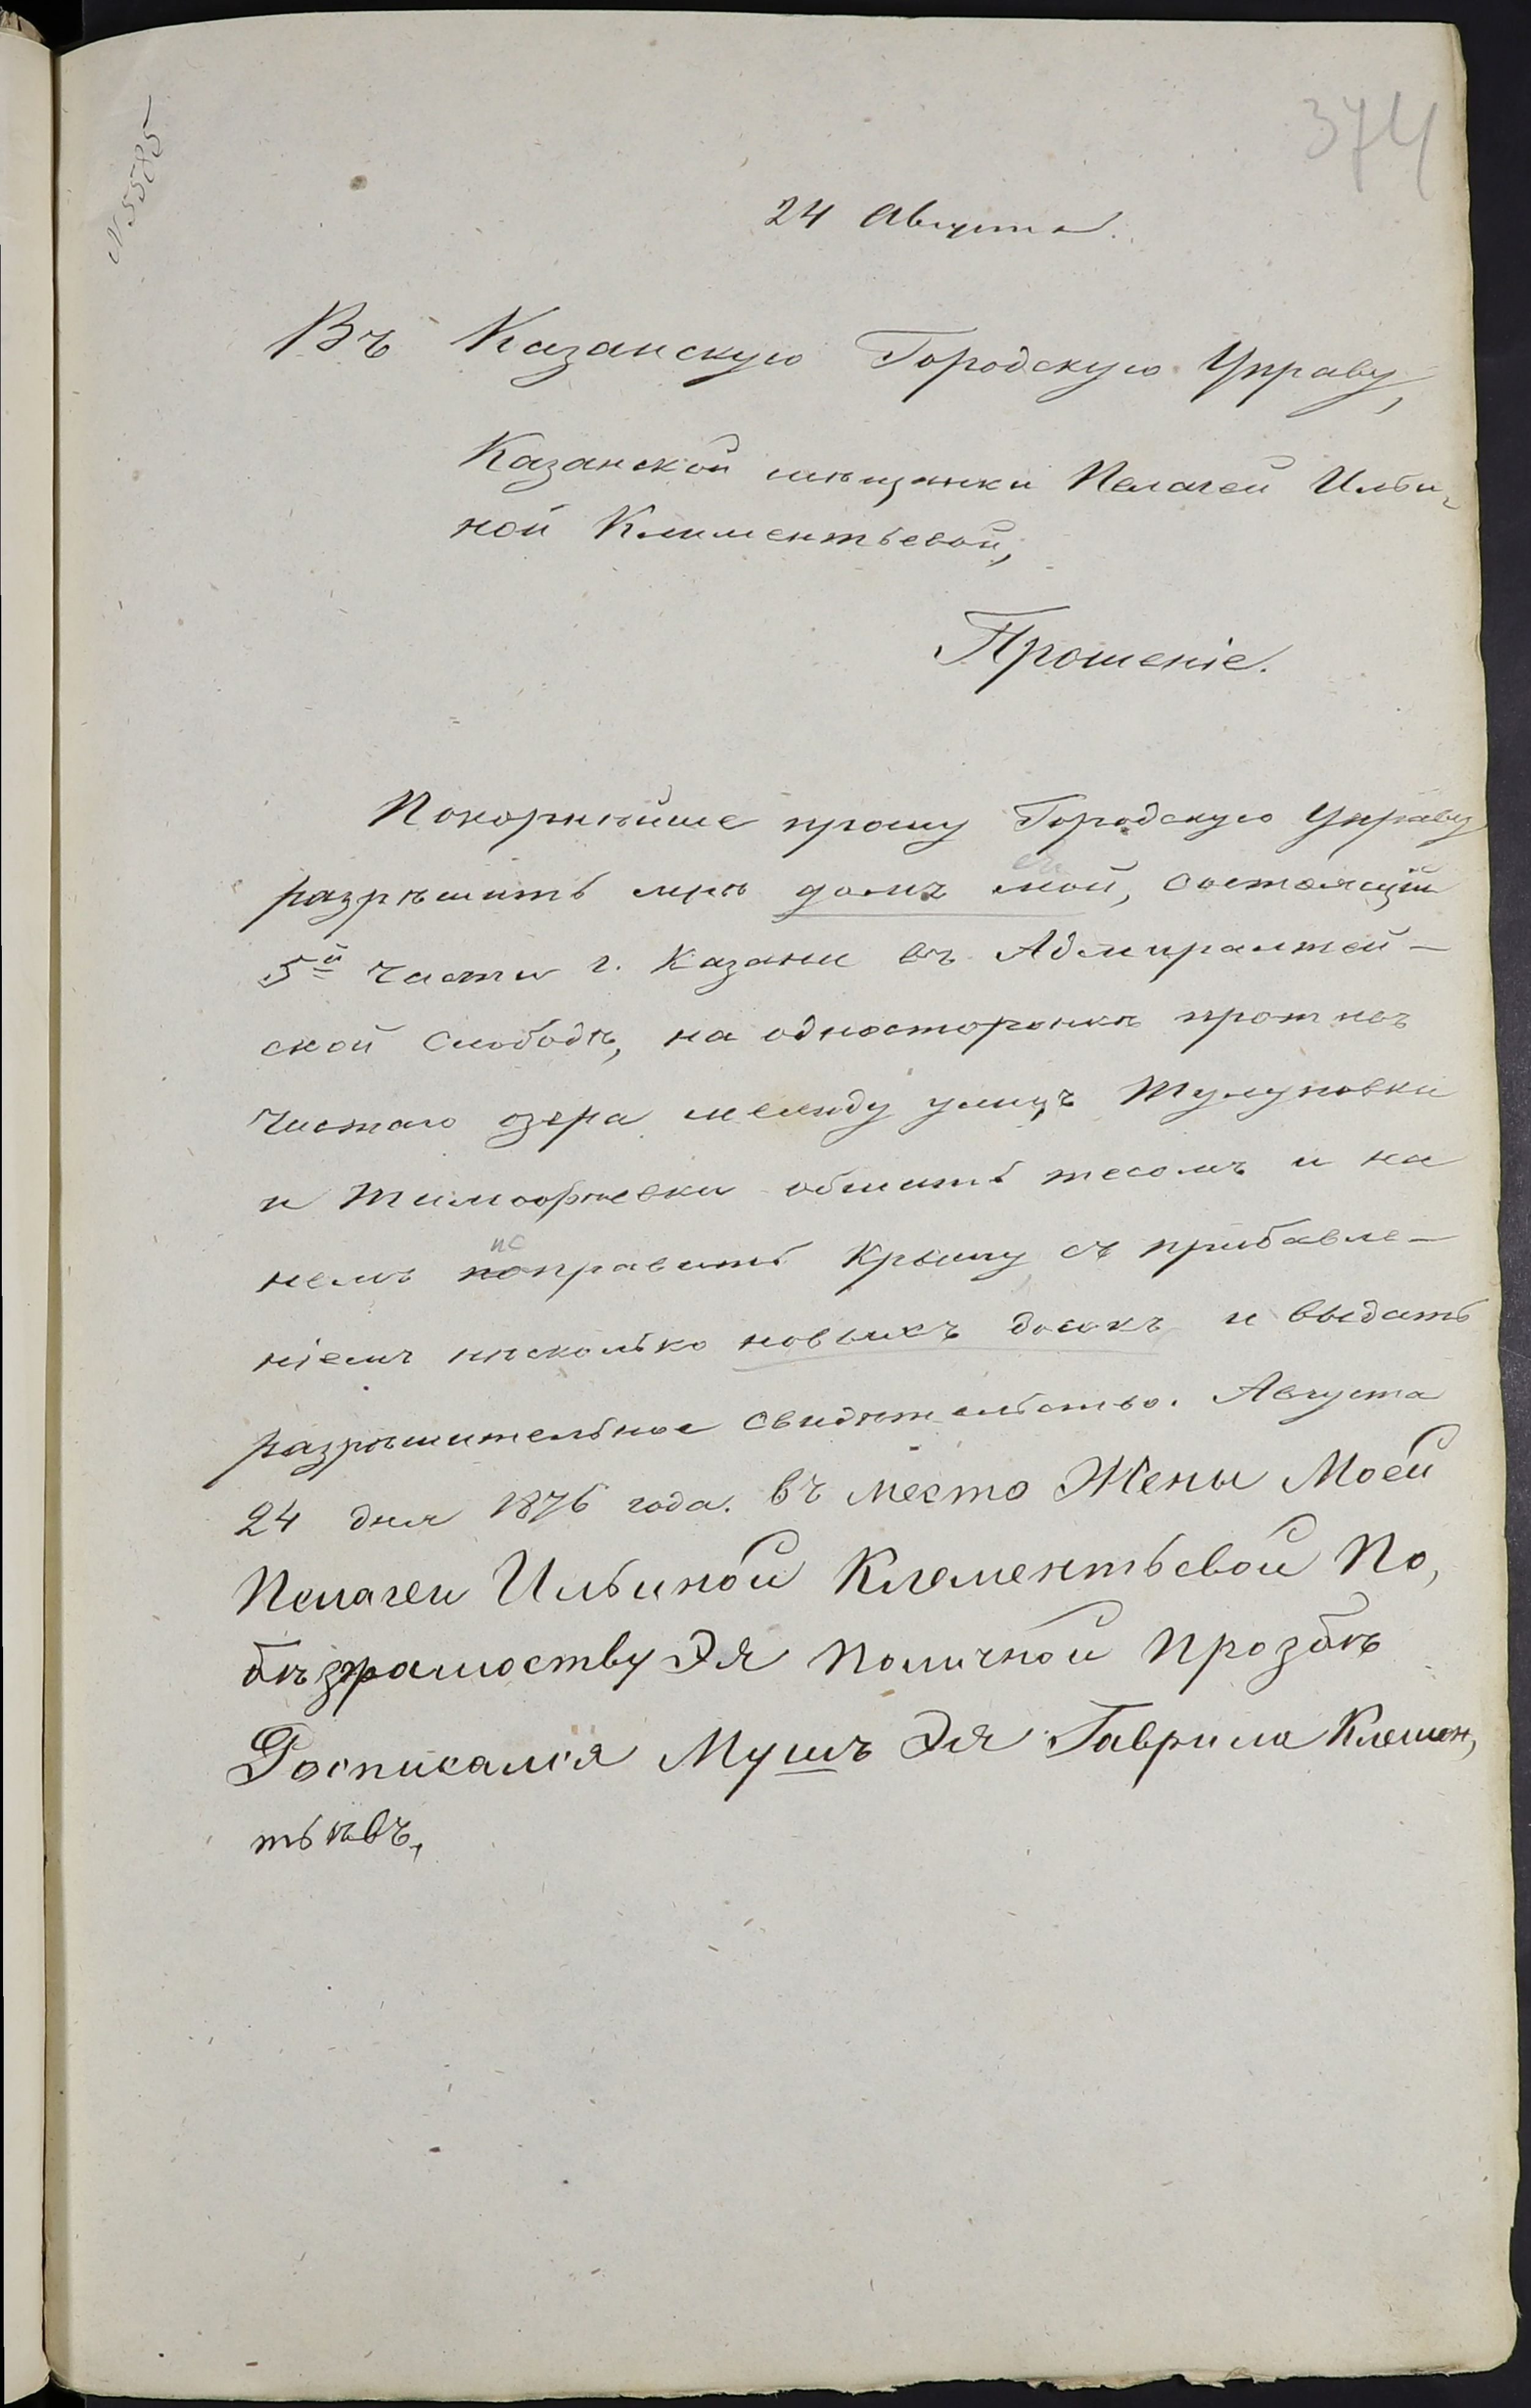 374
N 5585
24 Августа.
Въ Казанскую Городскую Управу,
Казанской мѣщанки Пелагеи Ильи-
ной Климентьевой,
Прошеніе.
Покорнѣйше прошу Городскую Управу
разрѣшить мнѣ домъ мой, состоящій
5й части г. Казани въ Адмиралтей-
ской Слободѣ, на односторонкѣ противъ
чистаго озера между улицъ Тулуповки
и Тимофѣевки обшить тесомъ и на
ис
немъ поправить крышу съ прибавле-
ніемъ нѣсколько новыхъ досокъ и выдать
разрѣшительное свидѣтельство. Августа
24 дня 1876 года. въ место Жены Моей
Пелагеи Ильиной Клементьевой По,
бѣзграмоству Эя Поличной Прозбѣ
Росписался Мушъ Эя Гаврила Клемен,
тьѣвъ,